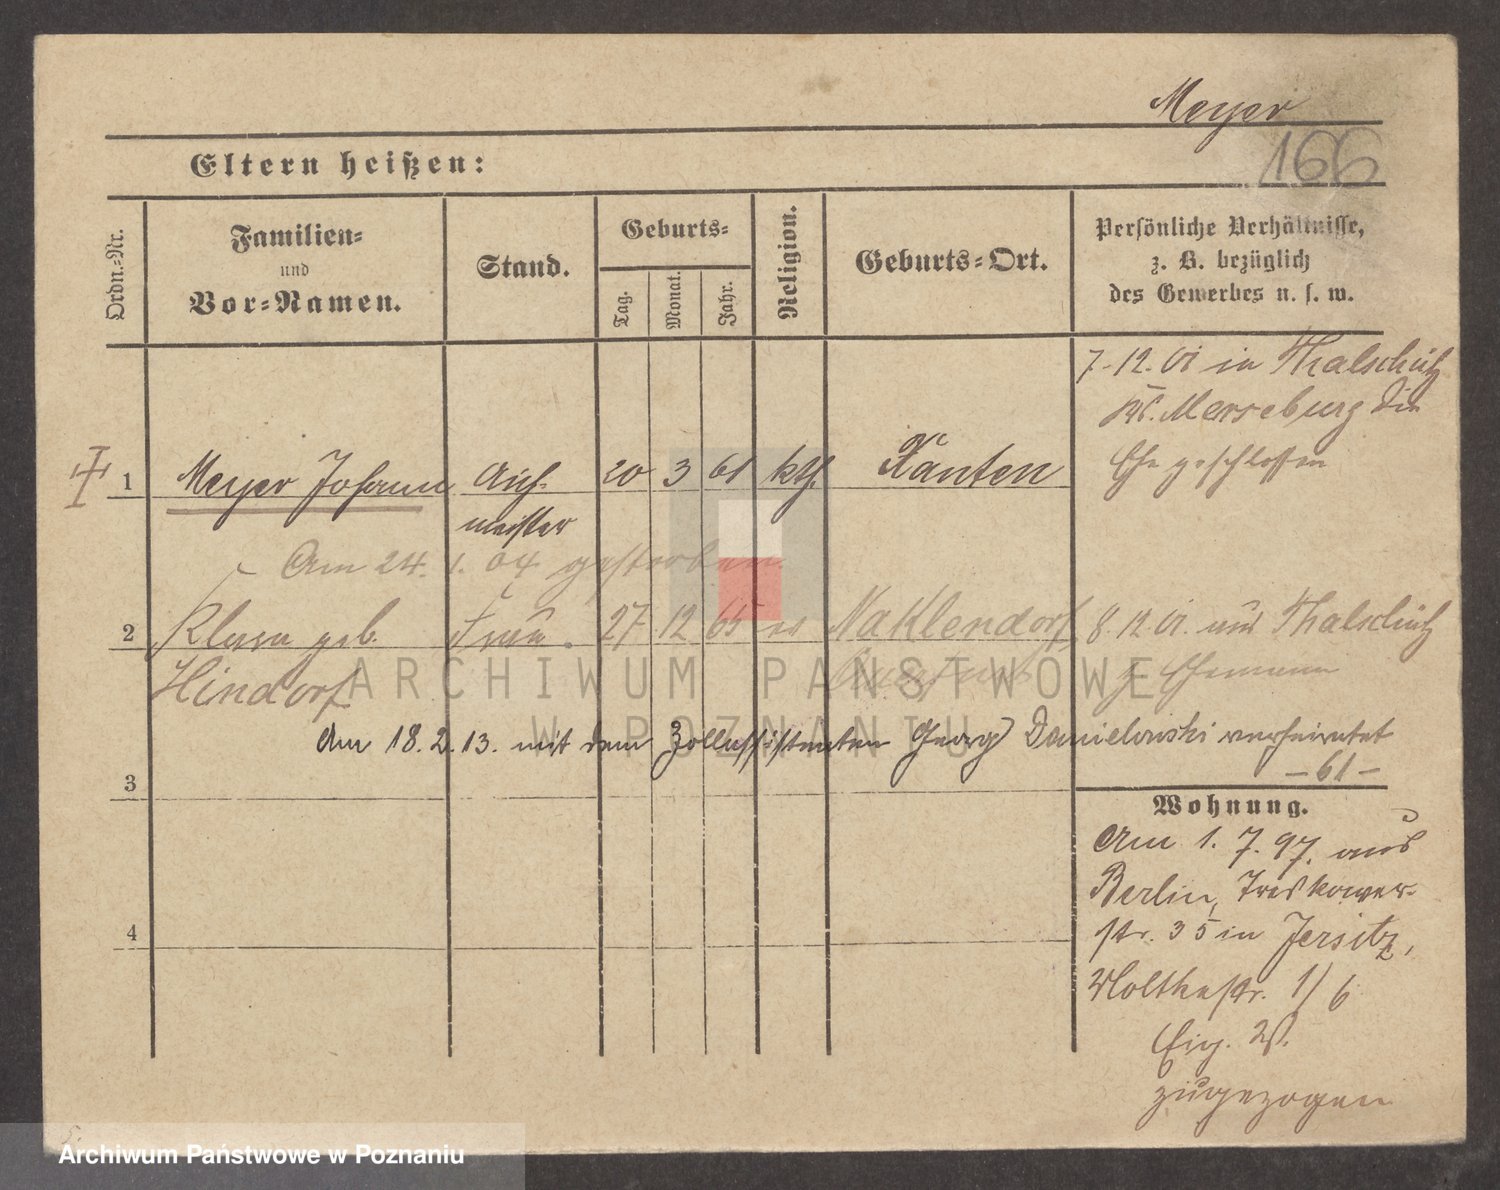 Meyer
166
Eltern heißen:
Ordn.-Nr.
Familien-
und
Vor-Namen.
Stand.
Geburts-
Tag.
Monat.
Jahr.
Religion.
Geburts-Ort.
Persönliche Verhältnisse,
z. B. bezüglich
des Gewerbes u. s. w.
7.12.01 in Thalschütz
Merseburg die
Ehe geschlossen
1 Meyer Johann 20 3 61 kth. Xanten
meister
Am 24. 1. 04 gestorben
2 Klara geb. Frau. 27 12 65 Naklendorf 8.12.01. aus Thalschütz
Hindorf z. Ehemann
Am 18.2.13. mit dem Zollassistenten Georg Danielowski verheiratet
3 -61-
Wohnung.
Am 1. 7. 97. aus
Berlin, Treskower-
4 str. 35 in Jersitz,
Moltkestr. 1/6
Eig. W.
zugezogen
ARCHIWUM PAŃSTWOWE
W POZNANIU
Archiwum Państwowe w Poznaniu